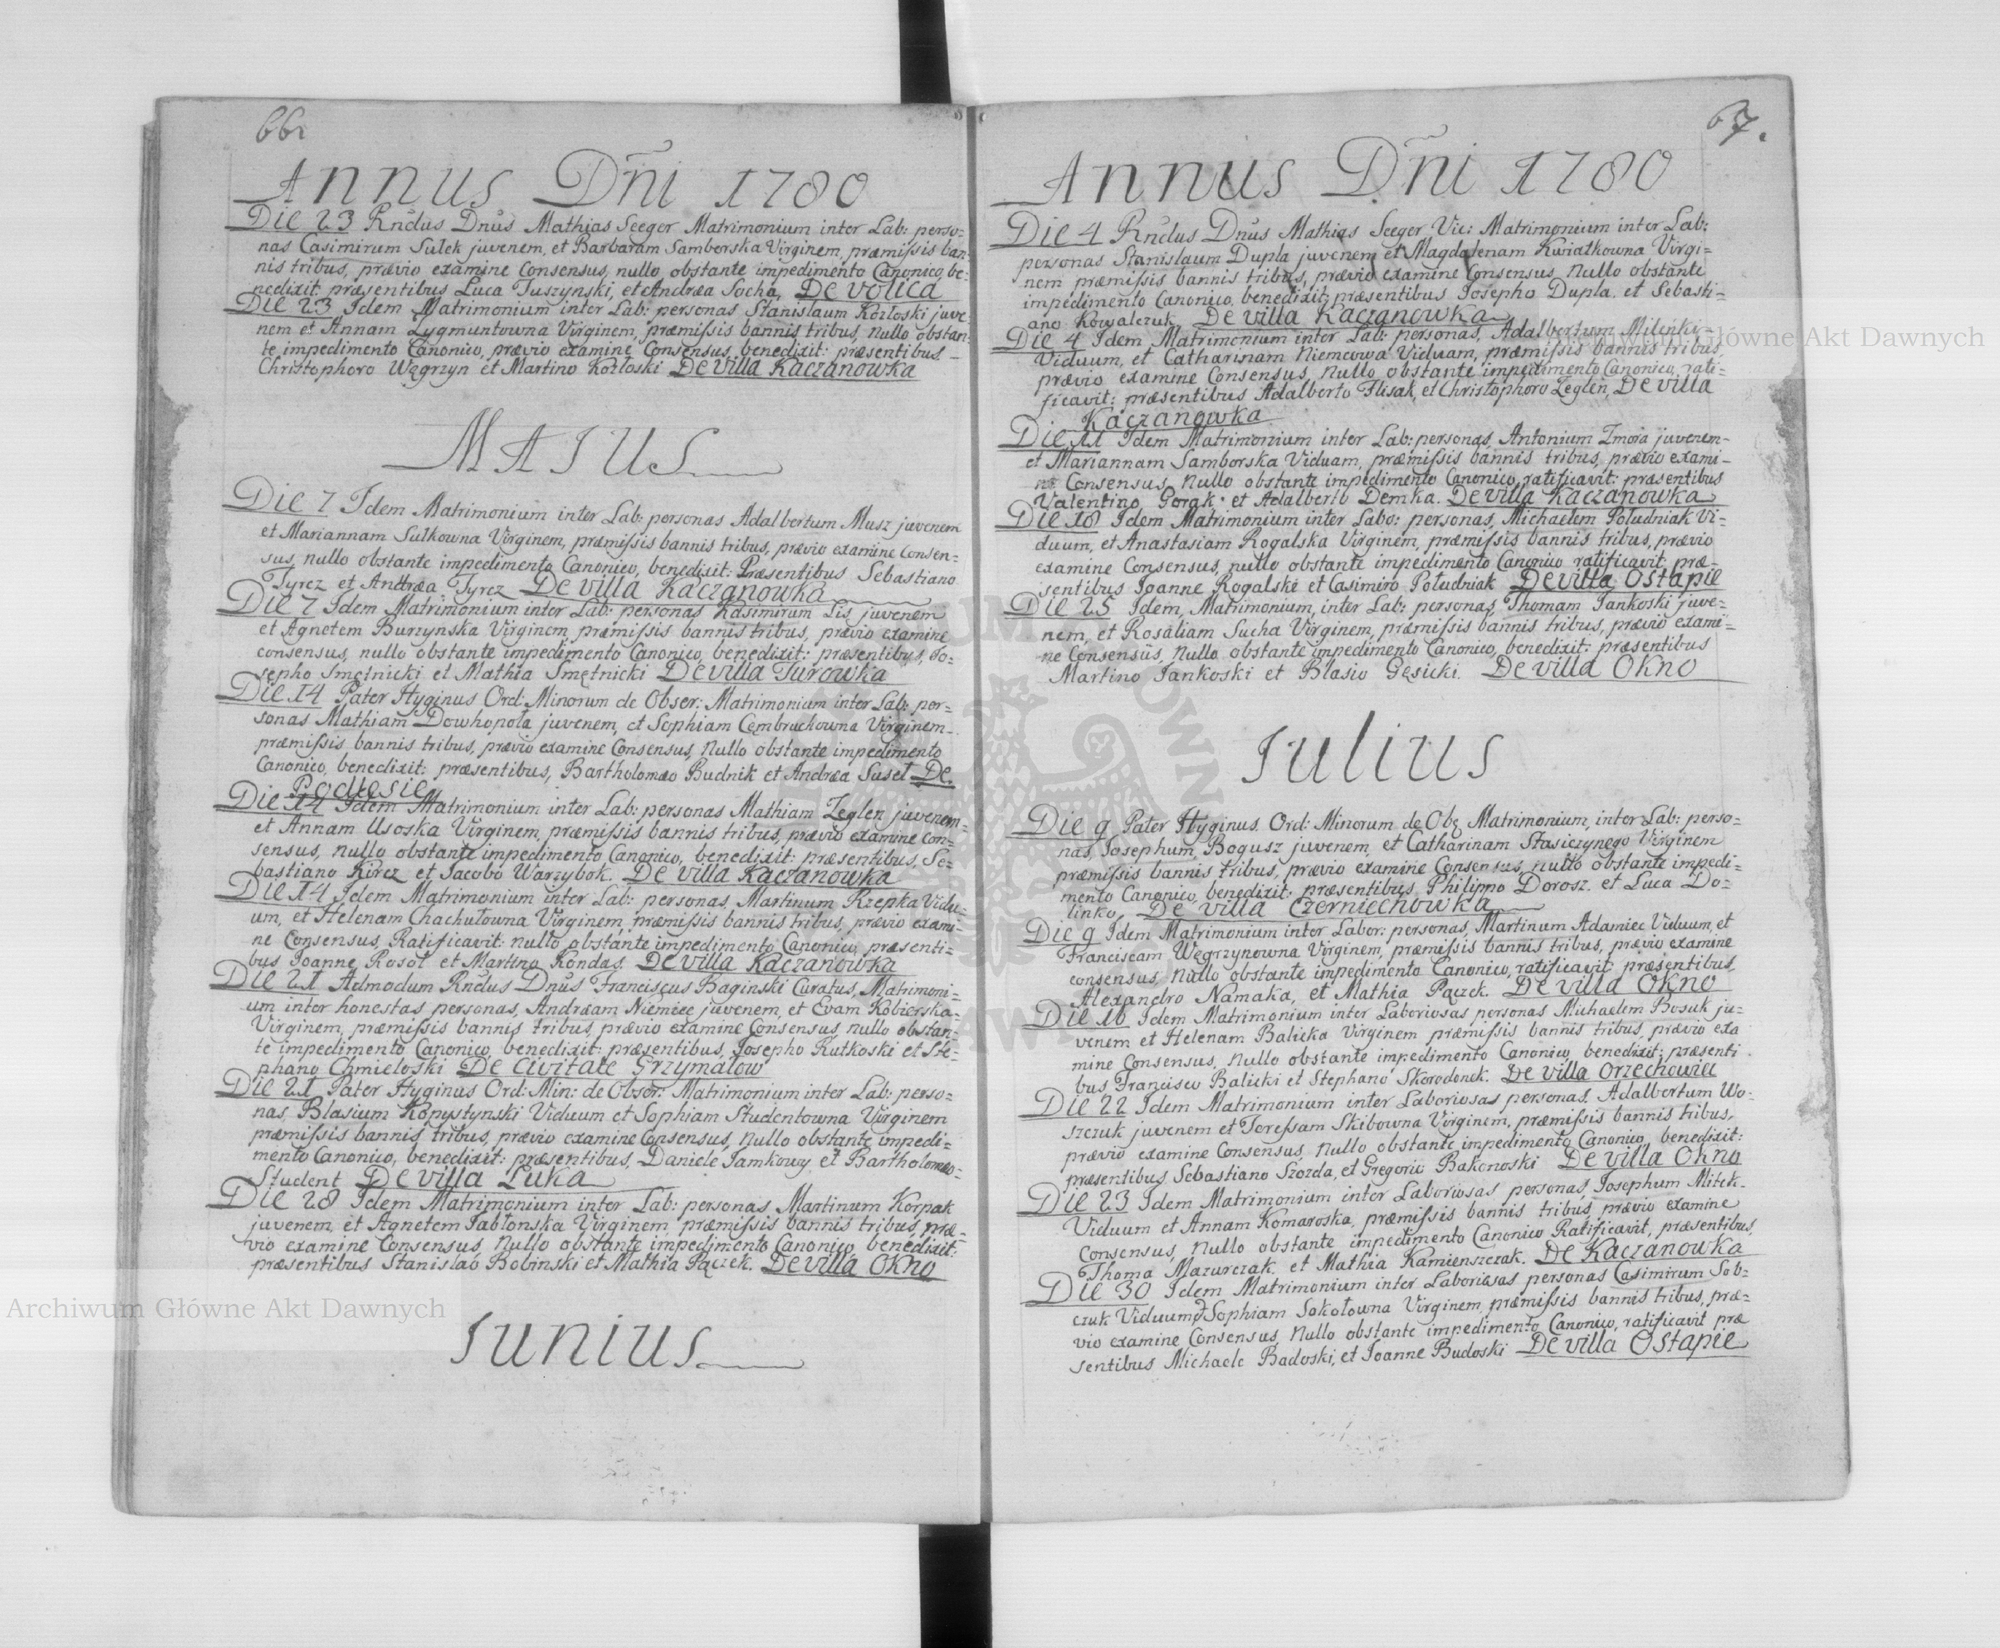 66
Annus Dñi 1780
Die 23 Rndus Dnus Mathias Seeger Matrimonium inter Lab: perso=
nas Casimirum Sulek juvenem, et Barbaram Samborska Virginem, præmissis ban=
nis tribus, prævio examine Consensus, nullo obstante impedimento Canonico, be=
nedixit præsentibus Luca Tuszynski, et Andræa Socha, De Volica
Die 23 Idem Matrimonium inter Lab: personas Stanislaum Kozłoski juve=
nem et Annam Zygmuntowna Virginem, præmissis bannis tribus, nullo obstan=
te impedimento Canonico, prævio examine Consensus, benedixit: præsentibus
Christophoro Węgrzyn et Martino Kozłoski De Villa Kaczanowka
MAIUS
Die 7 Idem Matrimonium inter Lab: personas Adalbertum Musz juvenem
et Mariannam Sulkowna Virginem, præmissis bannis tribus, prævio examine Consen=
sus, nullo obstante impedimento Canonico, benedixit: Præsentibus Sebastiano
Tyrcz et Andræa Tyrcz De Villa Kaczanowka
Die 7 Idem Matrimonium inter Lab: personas Kasimirum Lis juvenem
et Agnetem Burzynska Virginem, præmissis bannis tribus, prævio examine
consensus, nullo obstante impedimento Canonico, benedixit: præsentibus, Jo=
sepho Smętnicki et Mathia Smętnicki De Villa Turowka
Die 14 Pater Hyginus Ord: Minorum de Obser: Matrimonium inter Lab: per=
sonas Mathiam Dowhopoła juvenem, et Sophiam Cembruchowna Virginem
præmissis bannis tribus, prævio examine Consensus, Nullo obstante impedimento
Canonico, benedixit: præsentibus, Bartholomæo Budnik et Andræa Suseł De
Podlesie
Die 14 Idem Matrimonium inter Lab: personas Mathiam Zeglen juvenem
et Annam Usoska Virginem, præmissis bannis tribus, prævio examine Con=
sensus, nullo obstante impedimento Canonico, benedixit: præsentibus, Se=
bastiano Kircz et Jacobo Warzybok. De Villa Kaczanowka
Die 14 Idem Matrimonium inter Lab: personas, Martinum Rzepka Vidu=
um, et Helenam Chachułowna Virginem, præmissis bannis tribus, prævio exami=
ne Consensus, Ratificavit: nullo obstante impedimento Canonico, præsenti=
bus Joanne Rosoł et Martino Kondas. De Villa Kaczanowka
Die 21 Admodum Rndus Dnus Franciscus Baginski Curatus, Matrimoni=
um inter honestas personas, Andræam Niemiec juvenem, et Evam Kobierska
Virginem, præmissis bannis tribus, prævio examine Consensus, nullo obstan=
te impedimento Canonico, benedixit: præsentibus, Josepho Rutkoski et Ste=
phano Chmieloski De Civitate Grzymałow
Die 21 Pater Hyginus Ord: Min: de Obser: Matrimonium inter Lab: perso=
nas Blasium Kopystynski Viduum et Sophiam Studentowna Virginem
præmissis bannis tribus, prævio examine Consensus, nullo obstante impedi=
mento Canonico, benedixit: præsentibus, Daniele Jamkowy, et Bartholomæo
Student De Villa Luka
Die 28 Idem Matrimonium inter Lab: personas Martinum Korpak
juvenem, et Agnetem Jabłonska Virginem præmissis bannis tribus, præ=
vio examine Consensus, Nullo obstante impedimento Canonico, benedixit:
præsentibus Stanislao Bobinski et Mathia Pączek. De Villa Okno
Iunius
67.
Annus Dñi 1780
Die 4 Rndus Dnus Mathias Seeger Vic: Matrimonium inter Lab:
personas Stanislaum Dupla juvenem et Magdalenam Kwiatkowna Virgi=
nem præmissis bannis tribus, prævio examine Consensus, Nullo obstante
impedimento Canonico, benedixit: præsentibus Josepho Dupla. et Sebasti=
ano Kowalczuk De Villa Kaczanowka
Die 4 Idem Matrimonium inter Lab: personas, Adalbertum Milinki
Viduum, et Catharinam Niemcowa Viduam, præmissis bannis tribus,
prævio examine Consensus, Nullo obstante impedimento Canonico, rati=
ficavit: præsentibus Adalberto Flisak, et Christophoro Zeglen, De Villa
Kaczanowka
Die 11 Idem Matrimonium inter Lab: personas, Antonium Zmoja juvenem
et Mariannam Samborska Viduam, præmissis bannis tribus, prævio exami=
ne Consensus, Nullo obstante impedimento Canonico, ratificavit: præsentibus
Valentino Gorak et Adalberto Demka. De Villa Kaczanowka
Die 18 Idem Matrimonium inter Labo: personas, Michaelem Południak Vi=
duum, et Anastasiam Rogalska Virginem, præmissis bannis tribus, prævio
examine Consensus, nullo obstante impedimento Canonico ratificavit, præ=
sentibus Joanne Rogalski et Casimiro Południak De Villa Ostapie
Die 25 Idem, Matrimonium, inter Lab: personas Thomam Jankoski juve=
nem, et Rosaliam Sucha Virginem, præmissis bannis tribus, prævio exami=
ne Consensus, Nullo obstante impedimento Canonico, benedixit: præsentibus
Martino Jankoski et Blasio Gęsicki. De Villa Okno
Iulius
Die 9 Pater Hyginus. Ord: Minorum de Obs Matrimonium, inter Lab: perso=
nas, Josephum, Bogusz juvenem, et Catharinam Stasiczynego Virginem
præmissis bannis tribus, prævio examine Consensus, nullo obstante impedi=
mento Canonico, benedixit: præsentibus, Philippo Dorosz. et Luca Do=
linko, De Villa Czerniechowka
Die 9 Idem Matrimonium inter Labor: personas, Martinum Adamiec Viduum, et
Franciscam Węgrzynowna Virginem, præmissis bannis tribus, prævio examine
consensus, Nullo obstante impedimento Canonico, ratificavit præsentibus
Alexandro Namaka, et Mathia Pączek. De Villa Okno
Die 16 Idem Matrimonium inter Laboriosas personas Michaelem Bosuk ju=
venem et Helenam Balicka Virginem præmissis bannis tribus, prævio exa
mine Consensus, Nullo obstante impedimento Canonico, benedixit: præsenti
bus Francisco Balicki et Stephano Skorodonek. De Villa Orzechowiec
Die 22 Idem Matrimonium inter Laboriosas personas, Adalbertum Wo=
szczuk juvenem et Teressam Skibowna Virginem, præmissis bannis tribus,
prævio examine Consensus, Nullo obstante impedimento Canonico, benedixit:
præsentibus, Sebastiano Szozda, et Gregorio Bakonoski De Villa Okno
Die 23 Idem Matrimonium inter Laboriosas personas, Josephum Mitek
Viduum et Annam Komaroska, præmissis bannis tribus, prævio examine
Consensus, Nullo obstante impedimento Canonico Ratificavit, præsentibus,
Thoma Mazurczak, et Mathia Kamienszczak. De Kaczanowka
Die 30 Idem Matrimonium inter Laboriosas personas Casimirum Sob=
czuk Viduum, et Sophiam Sokołowna Virginem, præmissis bannis tribus, præ=
vio examine Consensus, Nullo obstante impedimento Canonico, ratificavit præ
sentibus Michaele Badoski, et Joanne Budoski De Villa Ostapie
Archiwum Główne Akt Dawnych
Archiwum Główne Akt Dawnych